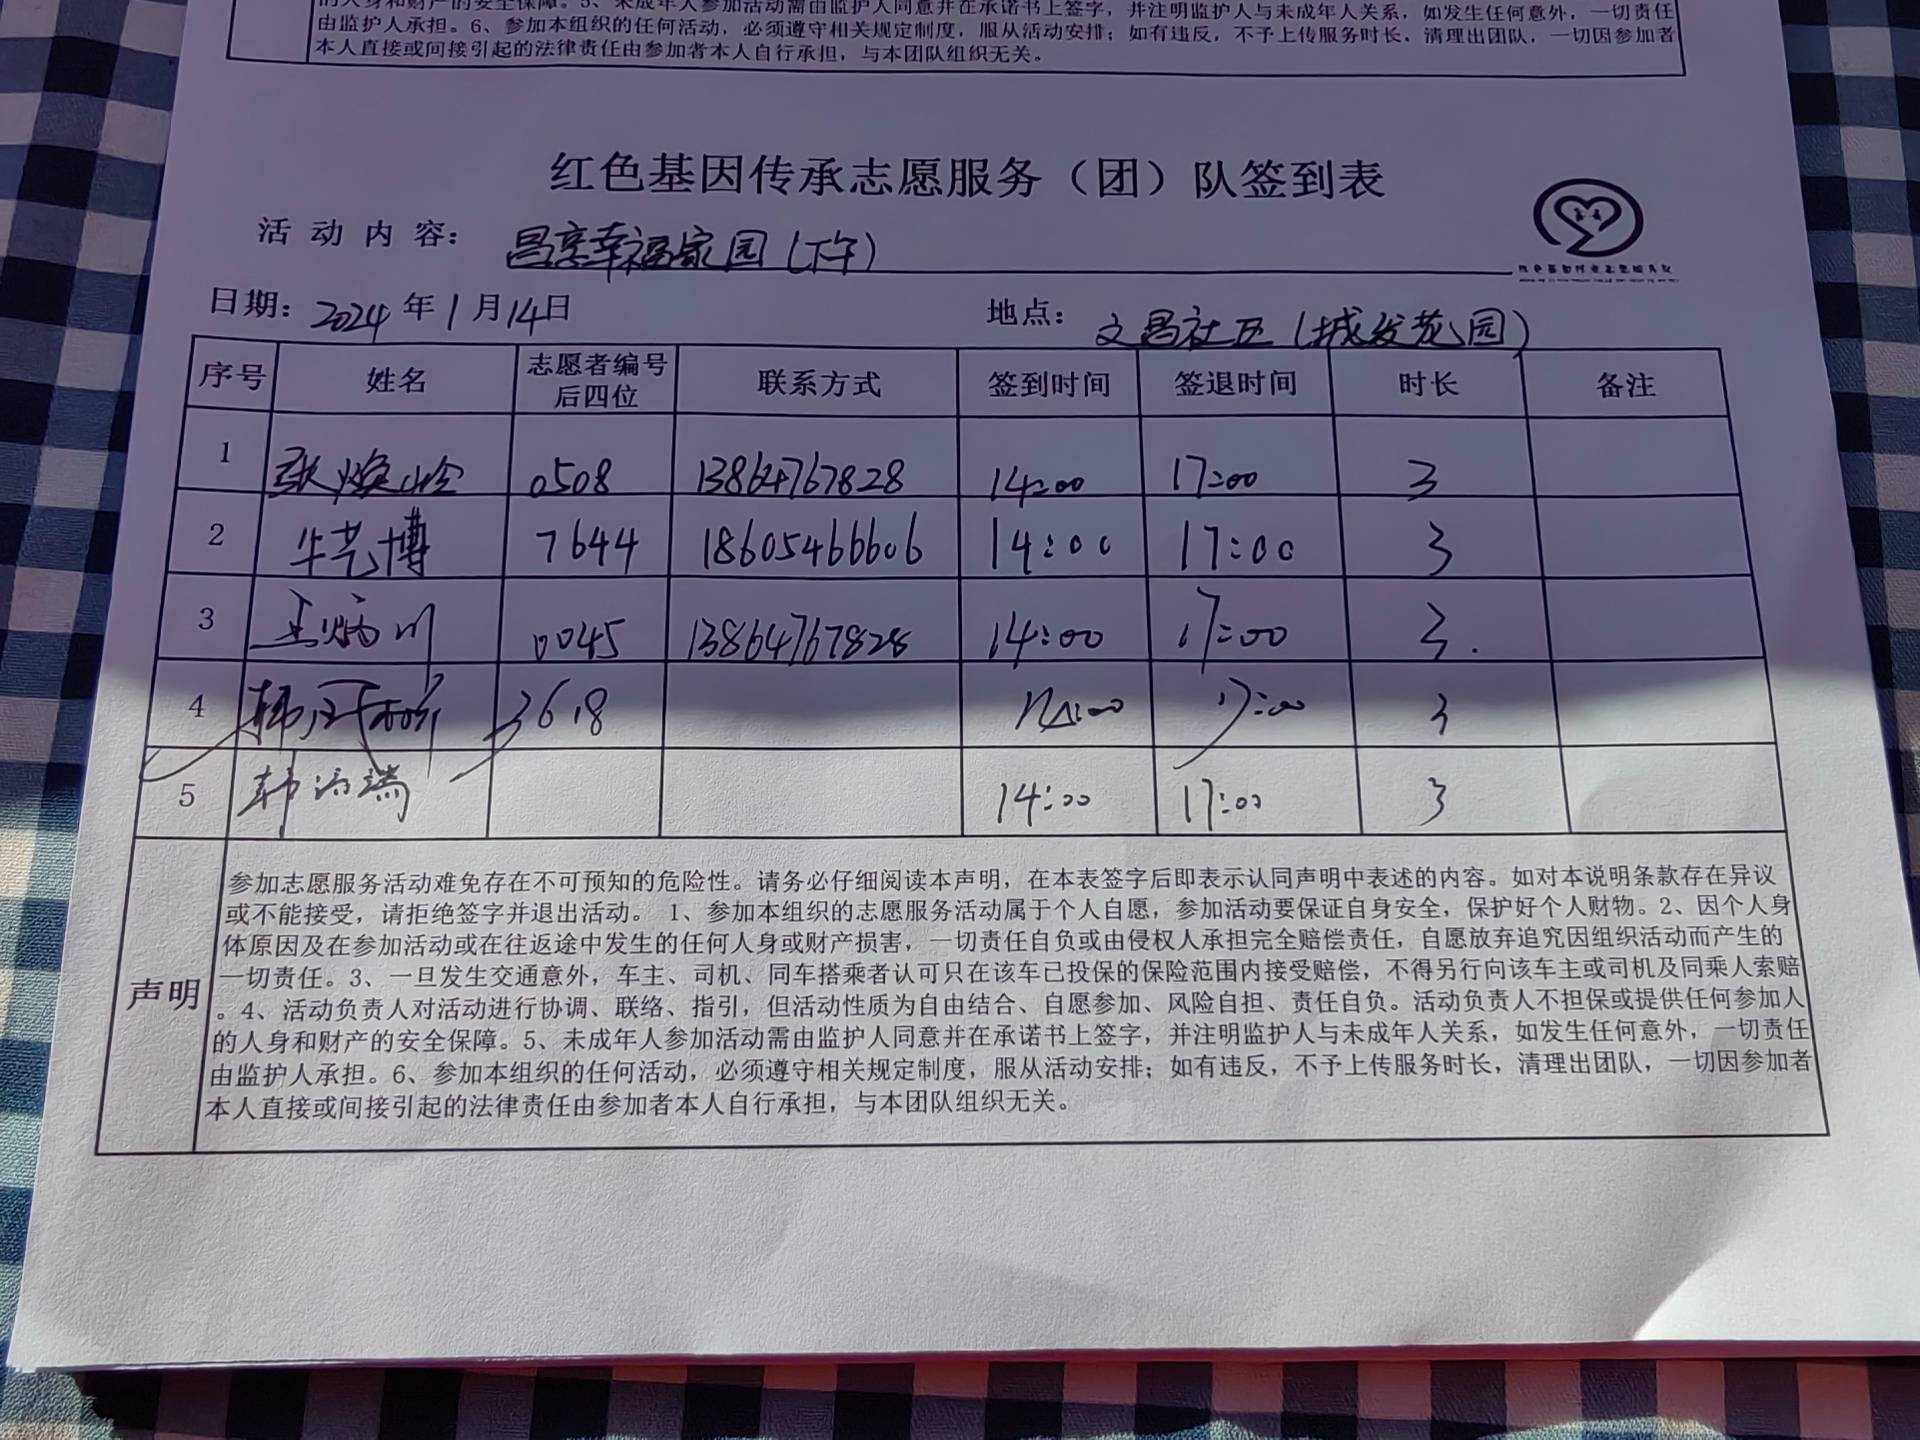 的人身和财产的安全保障。5、未成年人参加活动需由监护人同意并在承诺书上签字，并注明监护人与未成年人关系，如发生任何意外，一切责任
由监护人承担。6、参加本组织的任何活动，必须遵守相关规定制度，服从活动安排；如有违反，不予上传服务时长，清理出团队，一切因参加者
本人直接或间接引起的法律责任由参加者本人自行承担，与本团队组织无关。
红色基因传承志愿服务（团）队签到表
活动内容： 昌享幸福家园（下午）
日期：2024年1月14日 地点：文昌社区（城发花园）
序号 姓名 志愿者编号后四位 联系方式 签到时间 签退时间 时长 备注
1 张焕玲 0508 13864767828 14:00 17:00 3
2 牛艺博 7644 18605466606 14:00 17:00 3
3 王炳川 0045 13864767828 14:00 17:00 3.
4 韩 3618 14:00 17:00 3
5 韩 瑞 14:00 17:00 3
声明
参加志愿服务活动难免存在不可预知的危险性。请务必仔细阅读本声明，在本表签字后即表示认同声明中表述的内容。如对本说明条款存在异议
或不能接受，请拒绝签字并退出活动。 1、参加本组织的志愿服务活动属于个人自愿，参加活动要保证自身安全，保护好个人财物。2、因个人身
体原因及在参加活动或在往返途中发生的任何人身或财产损害，一切责任自负或由侵权人承担完全赔偿责任，自愿放弃追究因组织活动而产生的
一切责任。3、一旦发生交通意外，车主、司机、同车搭乘者认可只在该车已投保的保险范围内接受赔偿，不得另行向该车主或司机及同乘人索赔
。4、活动负责人对活动进行协调、联络、指引，但活动性质为自由结合、自愿参加、风险自担、责任自负。活动负责人不担保或提供任何参加人
的人身和财产的安全保障。5、未成年人参加活动需由监护人同意并在承诺书上签字，并注明监护人与未成年人关系，如发生任何意外，一切责任
由监护人承担。6、参加本组织的任何活动，必须遵守相关规定制度，服从活动安排；如有违反，不予上传服务时长，清理出团队，一切因参加者
本人直接或间接引起的法律责任由参加者本人自行承担，与本团队组织无关。